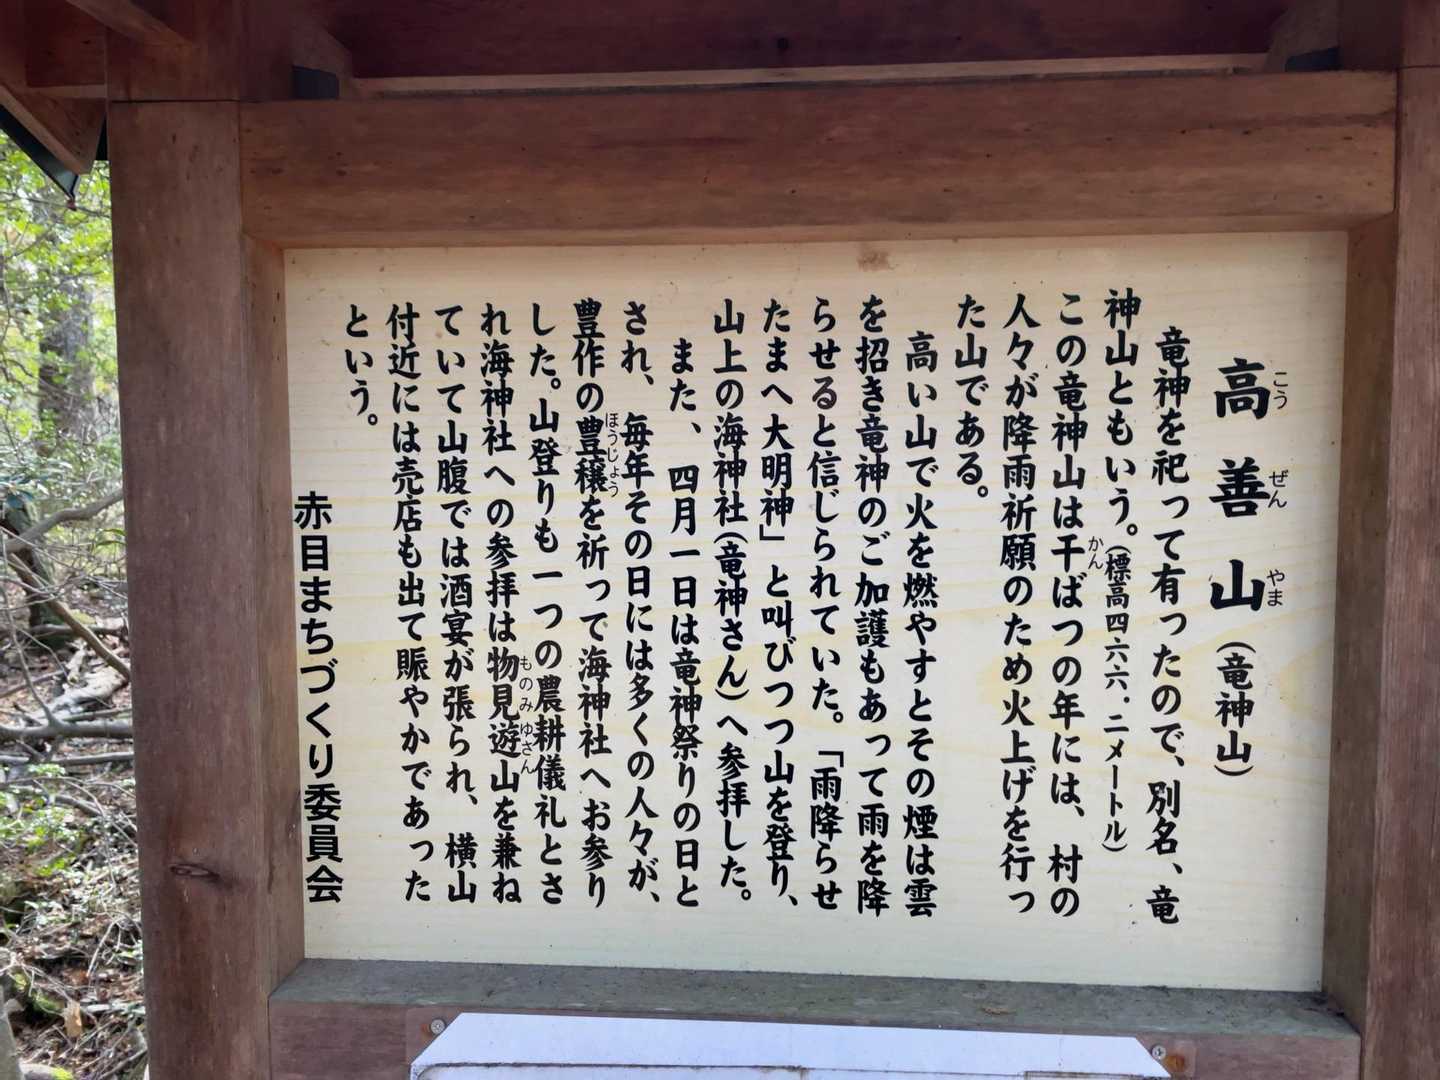 高善山(竜神山)
こうぜんやま
竜神を祀って有ったので、別名、竜
神山ともいう。(標高四六六.二メートル)
この竜神山は干ばつの年には、村の
かん
人々が降雨祈願のため火上げを行っ
た山である。
高い山で火を燃やすとその煙は雲
を招き竜神のご加護もあって雨を降
らせると信じられていた。「雨降らせ
たまへ大明神」と叫びつつ山を登り、
山上の海神社(竜神さん)へ参拝した。
また、四月一日は竜神祭りの日と
され、毎年その日には多くの人々が、
豊作の豊穣を祈って海神社へお参り
ほうじょう
した。山登りも一つの農耕儀礼とさ
れ海神社への参拝は物見遊山を兼ね
ものみゆさん
ていて山腹では酒宴が張られ、横山
付近には売店も出て賑やかであった
という。
赤目まちづくり委員会